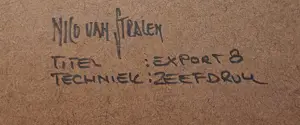 NICO VAN STRALEN
TITEL : EXPORT 8
TECHNIEK : ZEEFDRUK